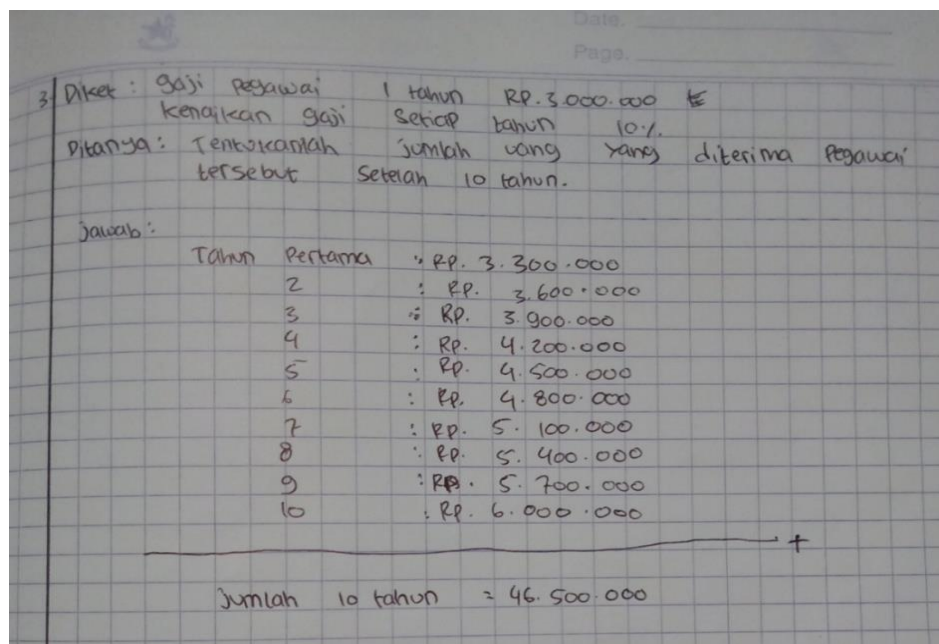 Date.
Page.
3. Diket : gaji pegawai 1 tahun RP. 3.000.000
kenaikan gaji setiap tahun 10%.
Ditanya : Tentukanlah jumlah uang yang diterima Pegawai
tersebut setelah 10 tahun.
Jawab :
Tahun Pertama : RP. 3.300.000
2 : RP. 3.600.000
3 : RP. 3.900.000
4 : RP. 4.200.000
5 : RP. 4.500.000
6 : RP. 4.800.000
7 : RP. 5.100.000
8 : RP. 5.400.000
9 : RP. 5.700.000
10 : RP. 6.000.000
+
Jumlah 10 tahun = 46.500.000